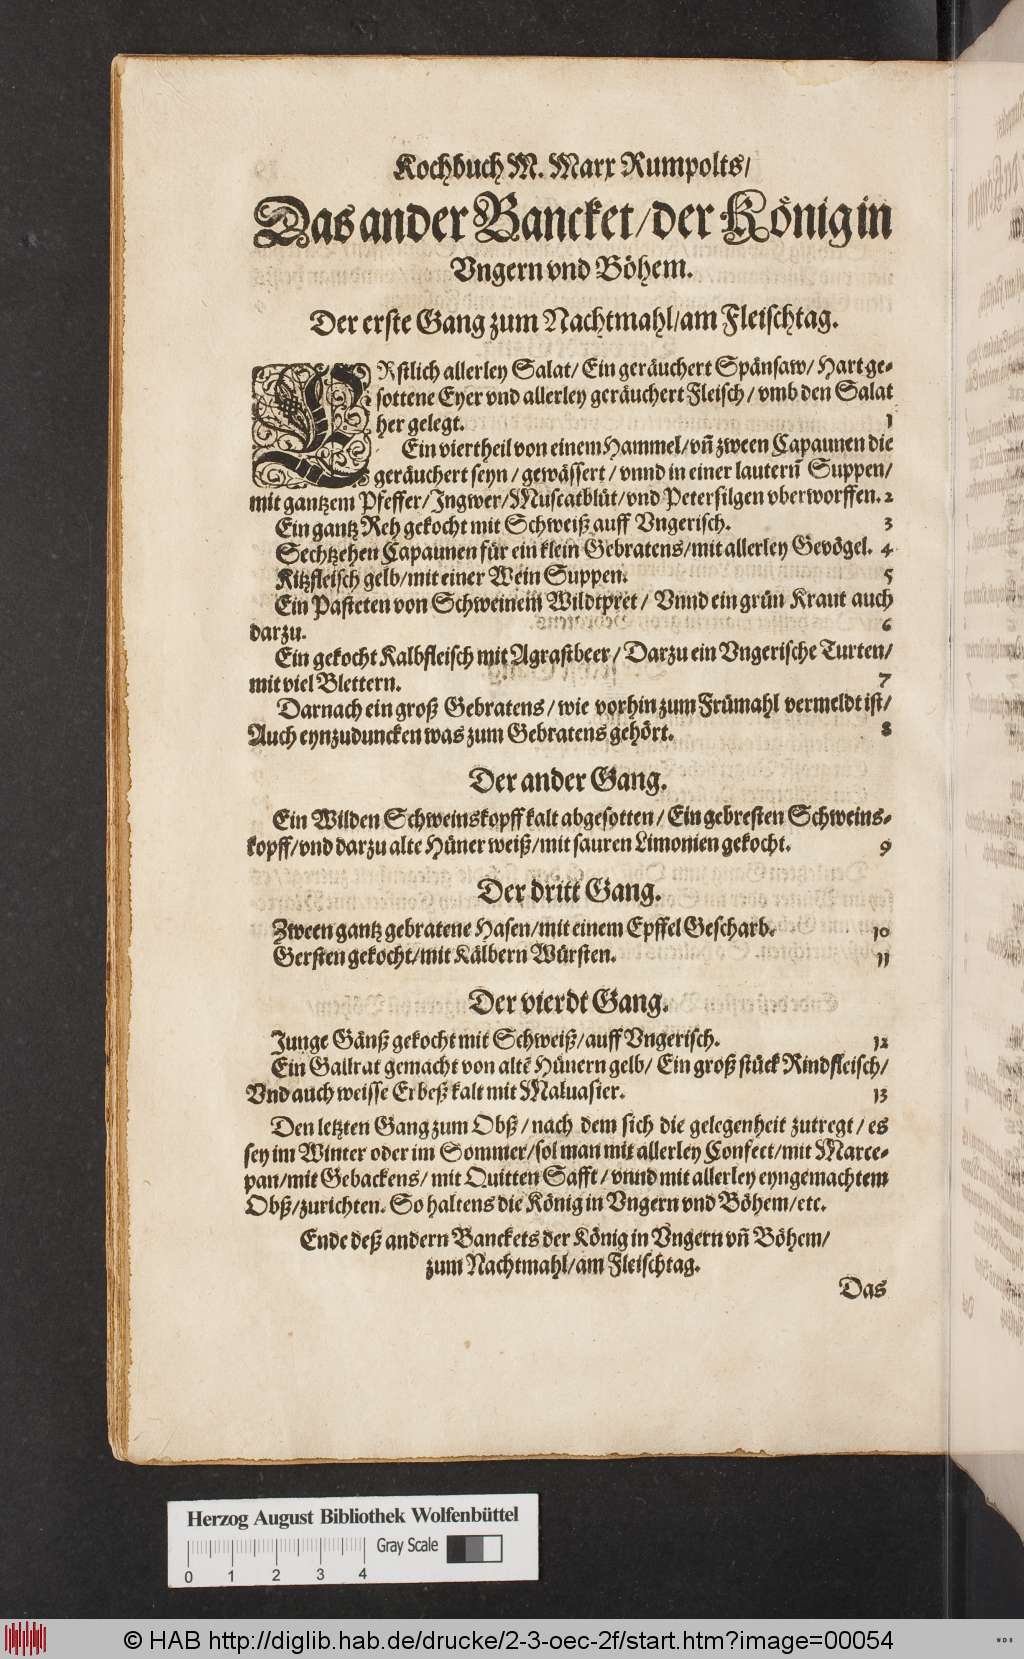 Kochbuch M. Marx Rumpolts/
Das ander Bancket/der König in
Vngern vnd Böhem.
Der erste Gang zum Nachtmahl/am Fleischtag.
ERstlich allerley Salat/ Ein geräuchert Spänsaw/ Hart ge-
sottene Eyer vnd allerley geräuchert Fleisch/ vmb den Salat
her gelegt. 1
Ein viertheil von einem Hammel/vn̄ zween Capaunen die
geräuchert seyn/ gewässert/ vnnd in einer lautern̄ Suppen/
mit gantzem Pfeffer/ Ingwer/Muscatblüt/vnd Petersilgen vberworffen. 2
Ein gantz Reh gekocht mit Schweiß auff Vngerisch. 3
Sechtzehen Capaunen für ein klein Gebratens/mit allerley Gevögel. 4
Kitzfleisch gelb/mit einer Wein Suppen. 5
Ein Pasteten von Schweinem Wildtpret/ Vnnd ein grün Kraut auch
darzu. 6
Ein gekocht Kalbfleisch mit Agrastbeer/ Darzu ein Vngerische Turten/
mit viel Blettern. 7
Darnach ein groß Gebratens/ wie vorhin zum Frümahl vermeldt ist/
Auch eynzuduncken was zum Gebratens gehört. 8
Der ander Gang.
Ein Wilden Schweinskopff kalt abgesotten/ Ein gebresten Schweins-
kopff/vnd darzu alte Hüner weiß/mit sauren Limonien gekocht. 9
Der dritt Gang.
Zween gantz gebratene Hasen/mit einem Epffel Gescharb. 10
Gersten gekocht/mit Kälbern Würsten. 11
Der vierdt Gang.
Junge Gänß gekocht mit Schweiß/auff Vngerisch. 12
Ein Gallrat gemacht von altē Hünern gelb/ Ein groß stück Rindfleisch/
Vnd auch weisse Erbeß kalt mit Maluasier. 13
Den letzten Gang zum Obß/ nach dem sich die gelegenheit zutregt/ es
sey im Winter oder im Sommer/sol man mit allerley Confect/mit Marce-
pan/mit Gebackens/ mit Quitten Safft/ vnnd mit allerley eyngemachtem
Obß/zurichten. So haltens die König in Vngern vnd Böhem/etc.
Ende deß andern Banckets der König in Vngern vn̄ Böhem/
zum Nachtmahl/am Fleischtag.
Das
Herzog August Bibliothek Wolfenbüttel
Gray Scale
0 1 2 3 4
© HAB http://diglib.hab.de/drucke/2-3-oec-2f/start.htm?image=00054